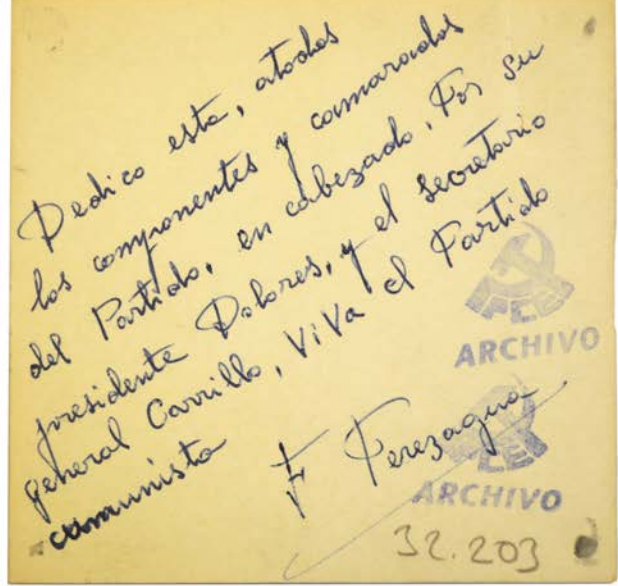 Dedico esta, atodos
los componentes y camarados
del Partido, en cabezado, Por su
presidente Dolores, y el secretario
general Carrillo, ViVa el Partido
comunista
F Perezagua
PCE
ARCHIVO
PCE
ARCHIVO
32.203